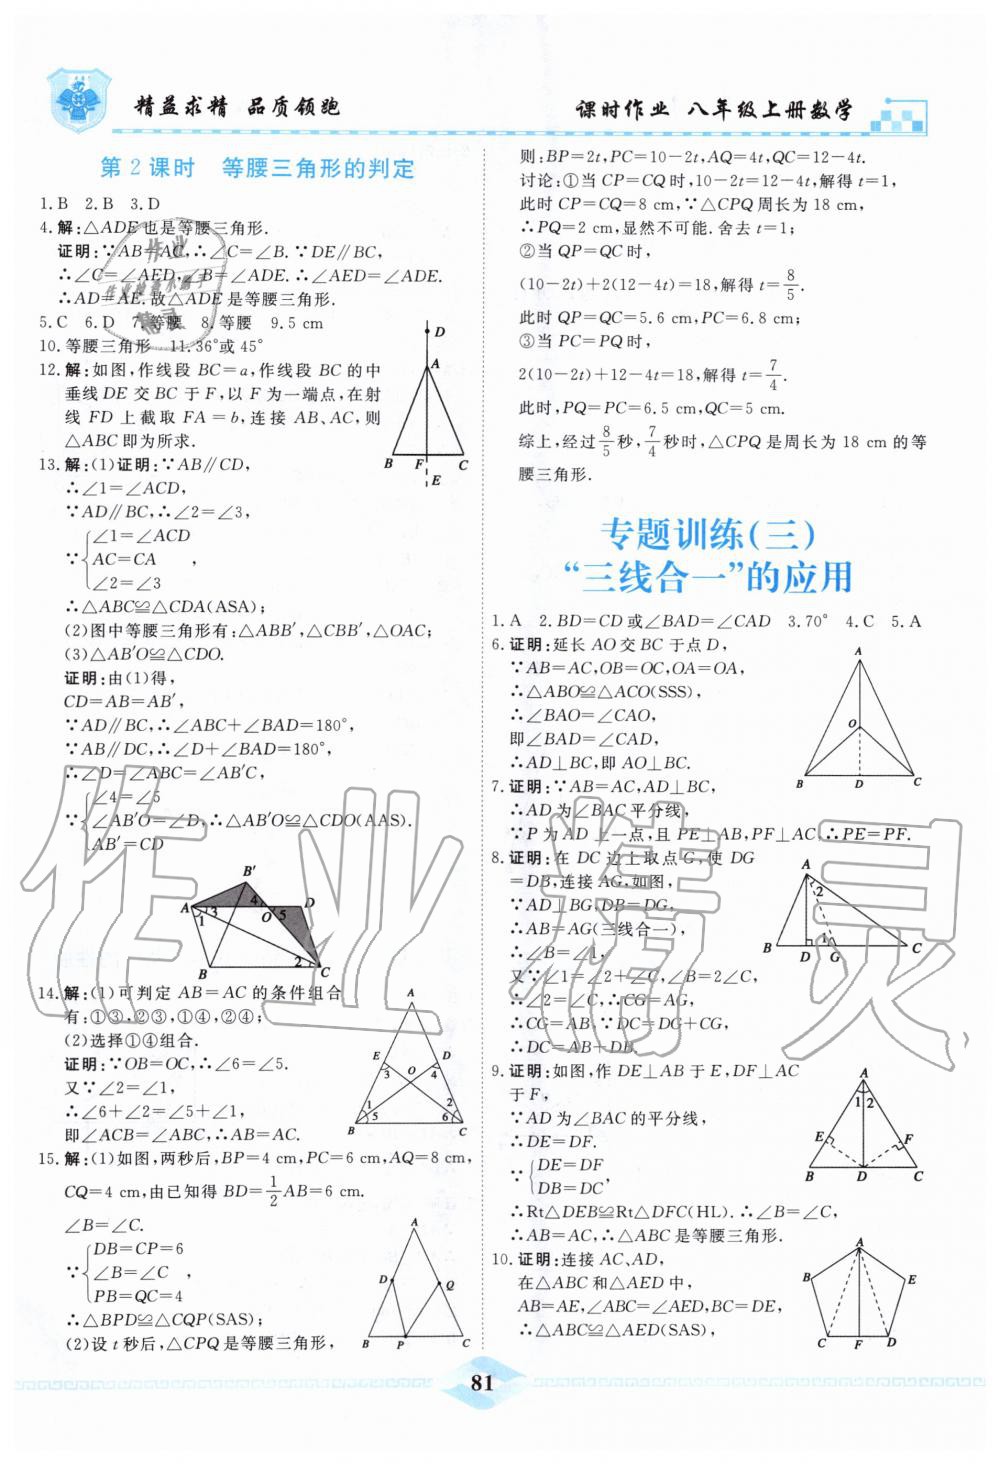 精益求精 品质领跑
课时作业 八年级上册数学
第2课时 等腰三角形的判定
1.B 2.B 3.D
4.解:△ADE也是等腰三角形.
证明:∵AB=AC,∴∠C=∠B.∵DE∥BC,
∴∠C=∠AED,∠B=∠ADE.∴∠AED=∠ADE.
∴AD=AE.故△ADE是等腰三角形.
5.C 6.D 7.等腰 8.等腰 9.5 cm
10.等腰三角形 11.36°或45°
12.解:如图,作线段BC=a,作线段BC的中
垂线DE交BC于F,以F为一端点,在射
线FD上截取FA=b,连接AB、AC,则
△ABC即为所求.
D
A
B F C
E
13.解:(1)证明:∵AB∥CD,
∴∠1=∠ACD,
∵AD∥BC,∴∠2=∠3,
∠1=∠ACD
∵{AC=CA ,
∠2=∠3
∴△ABC≌△CDA(ASA);
(2)图中等腰三角形有:△ABB′,△CBB′,△OAC;
(3)△AB′O≌△CDO.
证明:由(1)得,
CD=AB=AB′,
∵AD∥BC,∴∠ABC+∠BAD=180°,
∵AB∥DC,∴∠D+∠BAD=180°,
∴∠D=∠ABC=∠AB′C,
∠4=∠5
∵{∠AB′O=∠D,∴△AB′O≌△CDO(AAS).
AB′=CD
B′
A 3 4 5 D
1 O
B 2 C
14.解:(1)可判定AB=AC的条件组合
有:①③,②③,①④,②④;
(2)选择①④组合.
证明:∵OB=OC,∴∠6=∠5.
又∵∠2=∠1,
∴∠6+∠2=∠5+∠1,
即∠ACB=∠ABC,∴AB=AC.
A
E D
3 O 4
1 2
5 6
B C
15.解:(1)如图,两秒后,BP=4 cm,PC=6 cm,AQ=8 cm,
CQ=4 cm,由已知得BD=1/2AB=6 cm.
∠B=∠C.
DB=CP=6
∵{∠B=∠C ,
PB=QC=4
∴△BPD≌△CQP(SAS);
(2)设t秒后,△CPQ是等腰三角形,
A
D Q
B P C
则:BP=2t,PC=10-2t,AQ=4t,QC=12-4t.
讨论:①当CP=CQ时,10-2t=12-4t,解得t=1,
此时CP=CQ=8 cm,∵△CPQ周长为18 cm,
∴PQ=2 cm,显然不可能.舍去t=1;
②当QP=QC时,
(10-2t)+2(12-4t)=18,解得t=8/5.
此时QP=QC=5.6 cm,PC=6.8 cm;
③当PC=PQ时,
2(10-2t)+12-4t=18,解得t=7/4.
此时,PQ=PC=6.5 cm,QC=5 cm.
综上,经过8/5秒,7/4秒时,△CPQ是周长为18 cm的等
腰三角形.
专题训练(三)
“三线合一”的应用
1.A 2.BD=CD或∠BAD=∠CAD 3.70° 4.C 5.A
6.证明:延长AO交BC于点D,
∵AB=AC,OB=OC,OA=OA,
∴△ABO≌△ACO(SSS),
∴∠BAO=∠CAO,
即∠BAD=∠CAD,
∴AD⊥BC,即AO⊥BC.
A
O
B D C
7.证明:∵AB=AC,AD⊥BC,
∴AD为∠BAC平分线,
∵P为AD上一点,且PE⊥AB,PF⊥AC,∴PE=PF.
8.证明:在DC边上取点G,使DG
=DB,连接AG,如图,
∵AD⊥BG,DB=DG,
∴AB=AG(三线合一),
∴∠B=∠1,
又∵∠1=∠2+∠C,∠B=2∠C,
∴∠2=∠C,∴CG=AG,
∴CG=AB,∵DC=DG+CG,
∴DC=AB+DB.
A
2
1
B D G C
9.证明:如图,作DE⊥AB于E,DF⊥AC
于F,
∵AD为∠BAC的平分线,
∴DE=DF.
∵{DE=DF
DB=DC,
∴Rt△DEB≌Rt△DFC(HL).∴∠B=∠C,
∴AB=AC,∴△ABC是等腰三角形.
A
1 2
E F
B D C
10.证明:连接AC、AD,
在△ABC和△AED中,
AB=AE,∠ABC=∠AED,BC=DE,
∴△ABC≌△AED(SAS),
A
B E
C F D
81
作业精灵